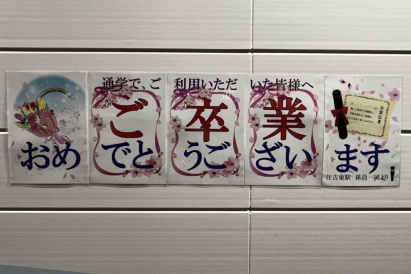 通学で、ご利用いただいた皆様へ
ご卒業
おめでとうございます
住吉東駅 係員一同より
卒業証書